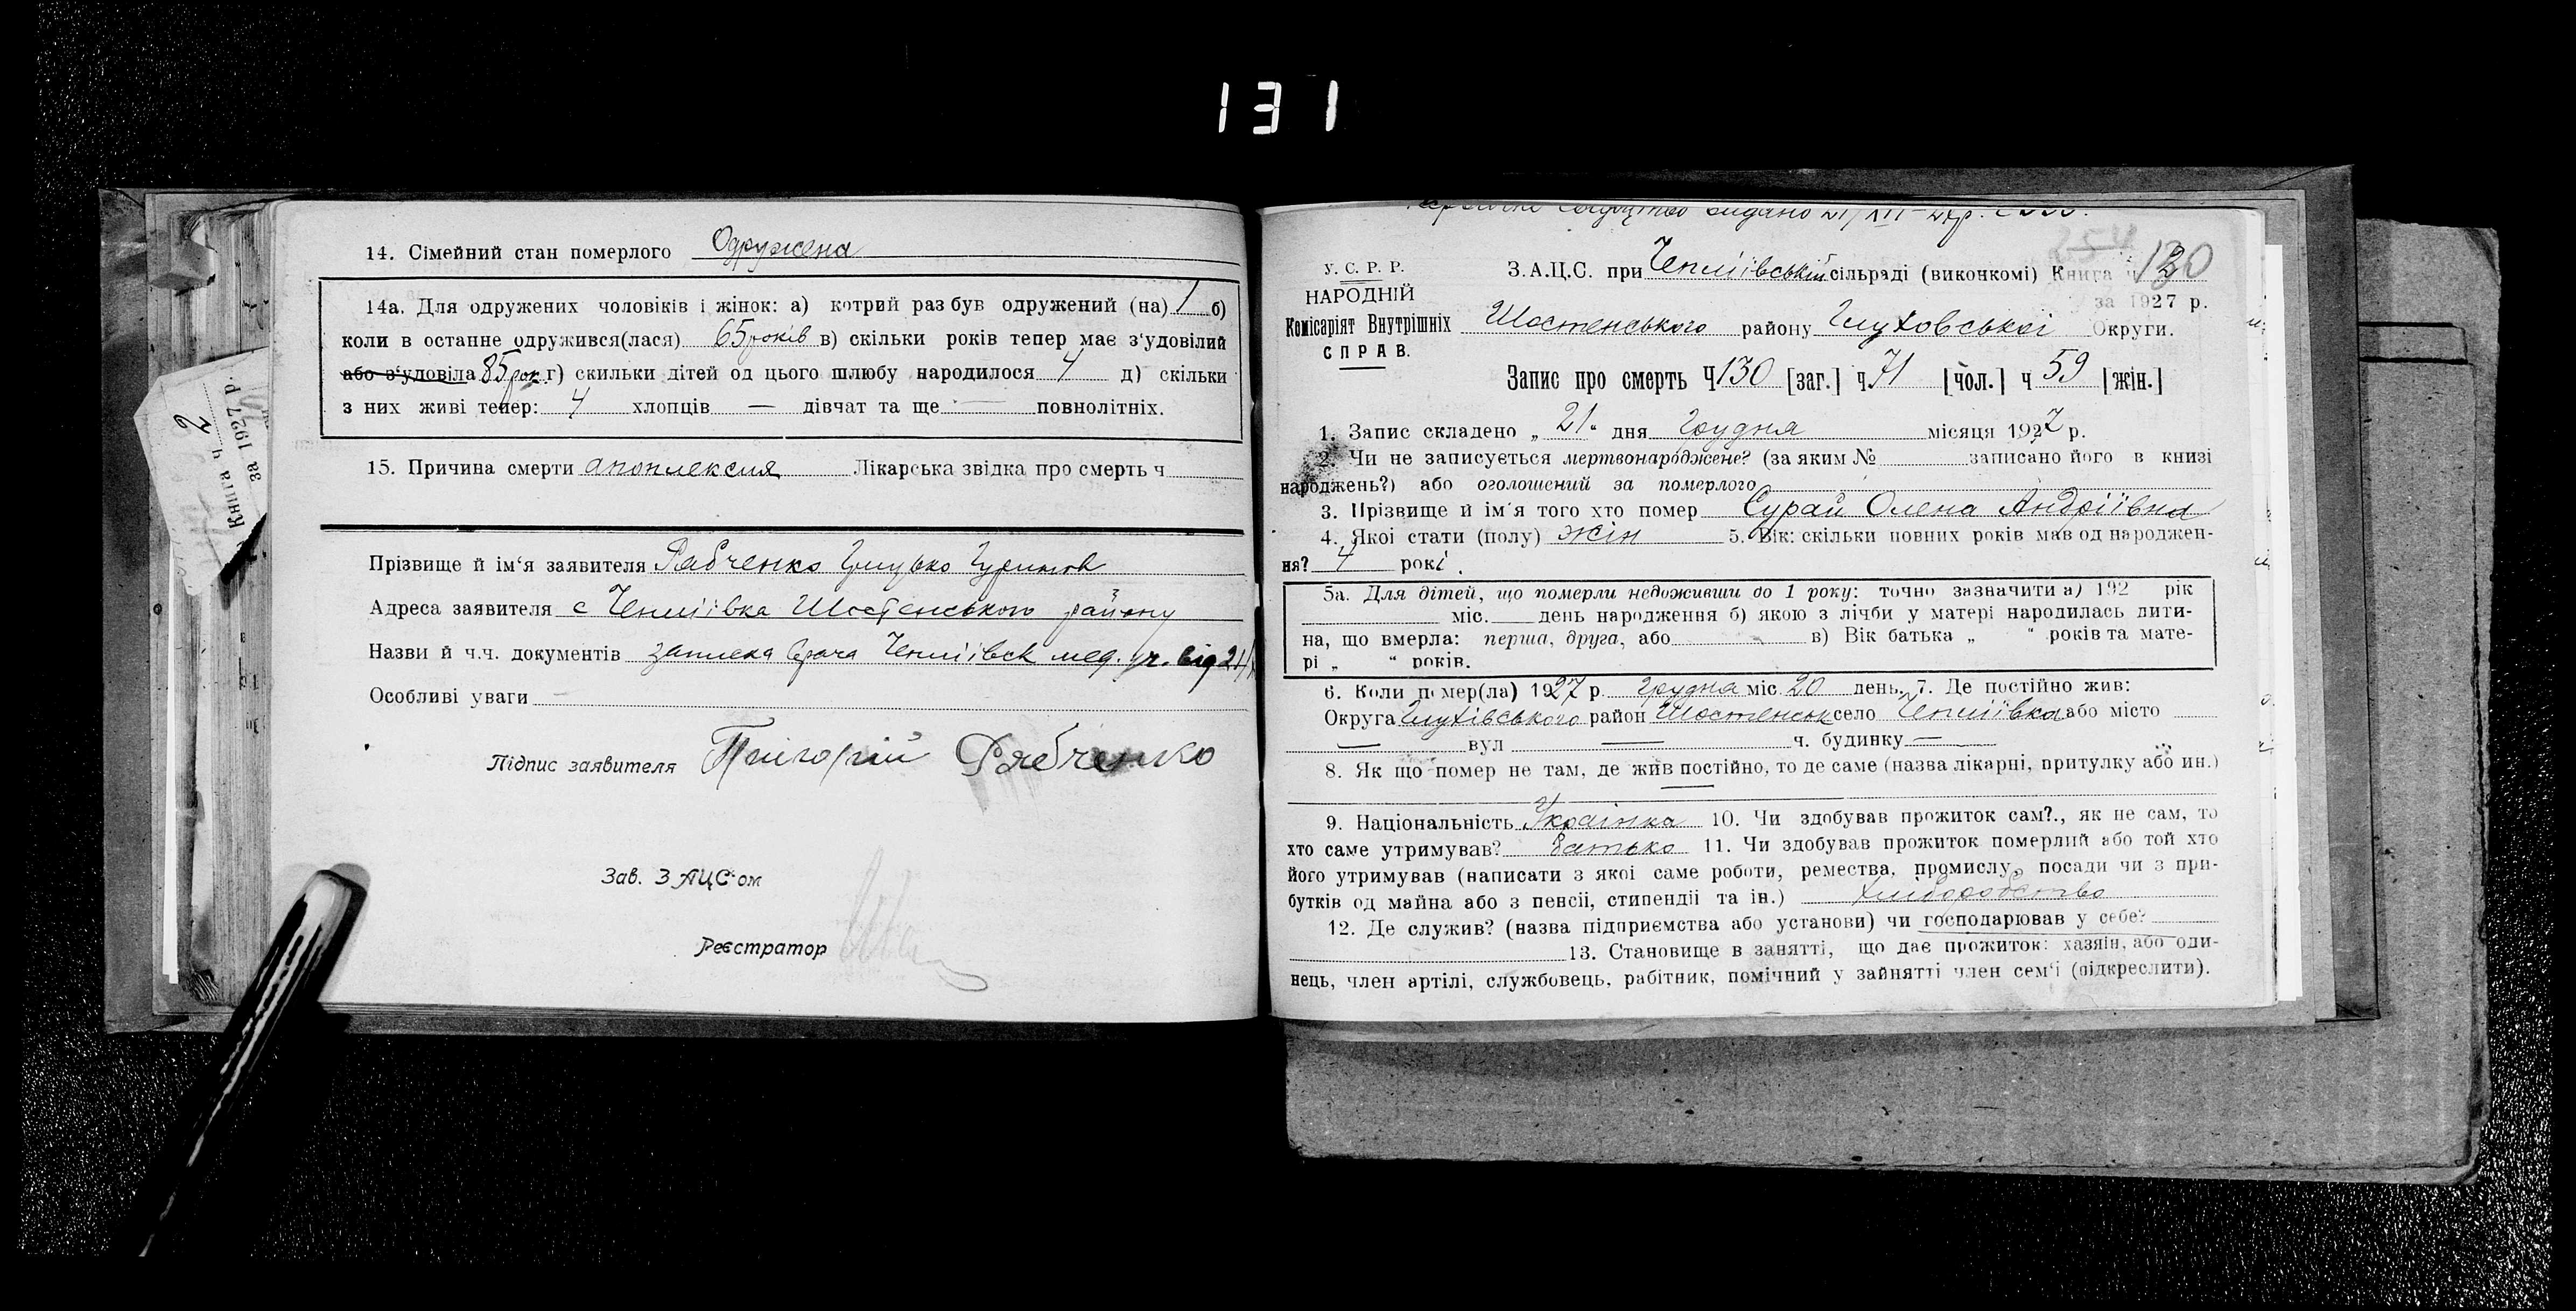 131
14. Сімейний стан померлого Одружена
14а. Для одружених чоловіків і жінок: а) котрий раз був одружений (на) 1 б)
коли в останне одружився(лася) 65 років в) скільки років тепер має з'удовілий
або з'удовіла 85 рок. г) скильки дітей од цього шлюбу народилося 4 д) скільки
з них живі тепер: 4 хлопців — дівчат та ще — повнолітніх.
15. Причина смерти апоплексия Лікарська звідка про смерть ч
Прізвище й ім'я заявителя Рабченко Грицько
Адреса заявителя с Чепліївка Шостенського району
Назви й ч.ч. документів записка врача Чепліївск мед. уч. від 21/
Особливі уваги —
Підпис заявителя Григорій Рябченко
Зав. ЗАЦС'ом
Реєстратор
Книга ч 2
за 1927 р.
видано 21/XII-27р.
254
У. С. Р. Р.
НАРОДНІЙ
Комісаріят Внутрішніх
СПРАВ.
З.А.Ц.С. при Чепліївській сільраді (виконкомі) Книга ч 130
за 1927 р.
Шостенського району Глуховської Округи.
Запис про смерть Ч 130 [заг.] ч. 71 [чол.] ч 59 [жін.]
1. Запис складено „ 21 “ дня Грудня місяця 1927 р.
2. Чи не записується мертвонароджене? (за яким № записано його в книзі
народжень?) або оголошений за померлого
3. Прізвище й ім'я того хто помер Сурай Олена Андріївна
4. Якої стати (полу) жін 5. Вік: скільки повних років мав од народжен-
ня? 4 рокі.
5а. Для дітей, що померли недоживши до 1 року: точно зазначити а) 192 рік
міс. день народження б) якою з лічби у матері народилась дити-
на, що вмерла: перша, друга, або в) Вік батька „ “ років та мате-
рі „ “ років.
6. Коли помер(ла) 1927 р. Грудня міс. 20 день. 7. Де постійно жив:
Округа Глухівського район Шостенськ село Чепліївка або місто
— вул — ч. будинку —
8. Як що помер не там, де жив постійно, то де саме (назва лікарні, притулку або ин.)
—
9. Національність Українка 10. Чи здобував прожиток сам?., як не сам, то
хто саме утримував? батько 11. Чи здобував прожиток померлий або той хто
його утримував (написати з якої саме роботи, ремества, промислу, посади чи з при-
бутків од майна або з пенсії, стипендії та ін.) хліборобство
12. Де служив? (назва підприємства або установи) чи господарював у себе?
13. Становище в занятті, що дає прожиток: хазяін, або оди-
нець, член артілі, службовець, рабітник, помічний у зайнятті член сем'ї (підкреслити).